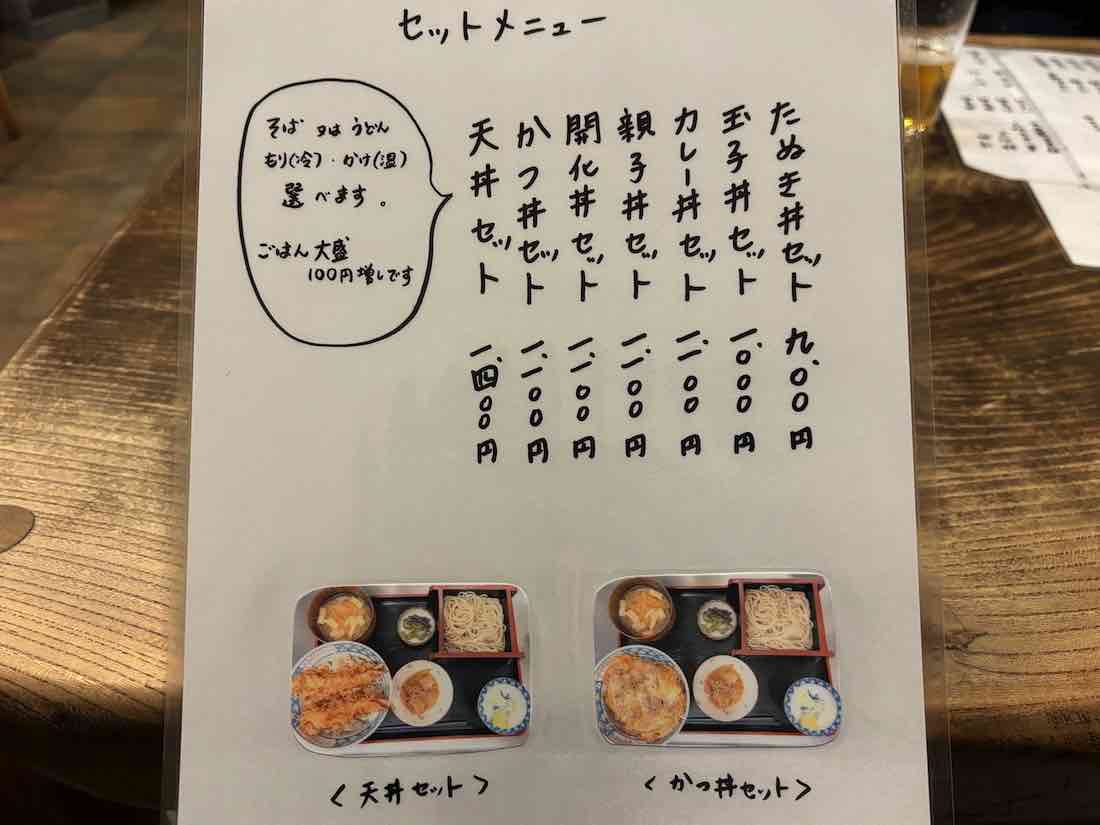 セットメニュー
たぬき丼セット 九、〇〇円
玉子丼セット 一、〇〇〇円
カレー丼セット 一、一〇〇円
親子丼セット 一、一〇〇円
開化丼セット 一、一〇〇円
かつ丼セット 一、一〇〇円
天丼セット 一、四〇〇円
そば 又は うどん
もり(冷)・かけ(温)
選べます。
ごはん大盛
100円増しです
<天丼セット>
<かつ丼セット>